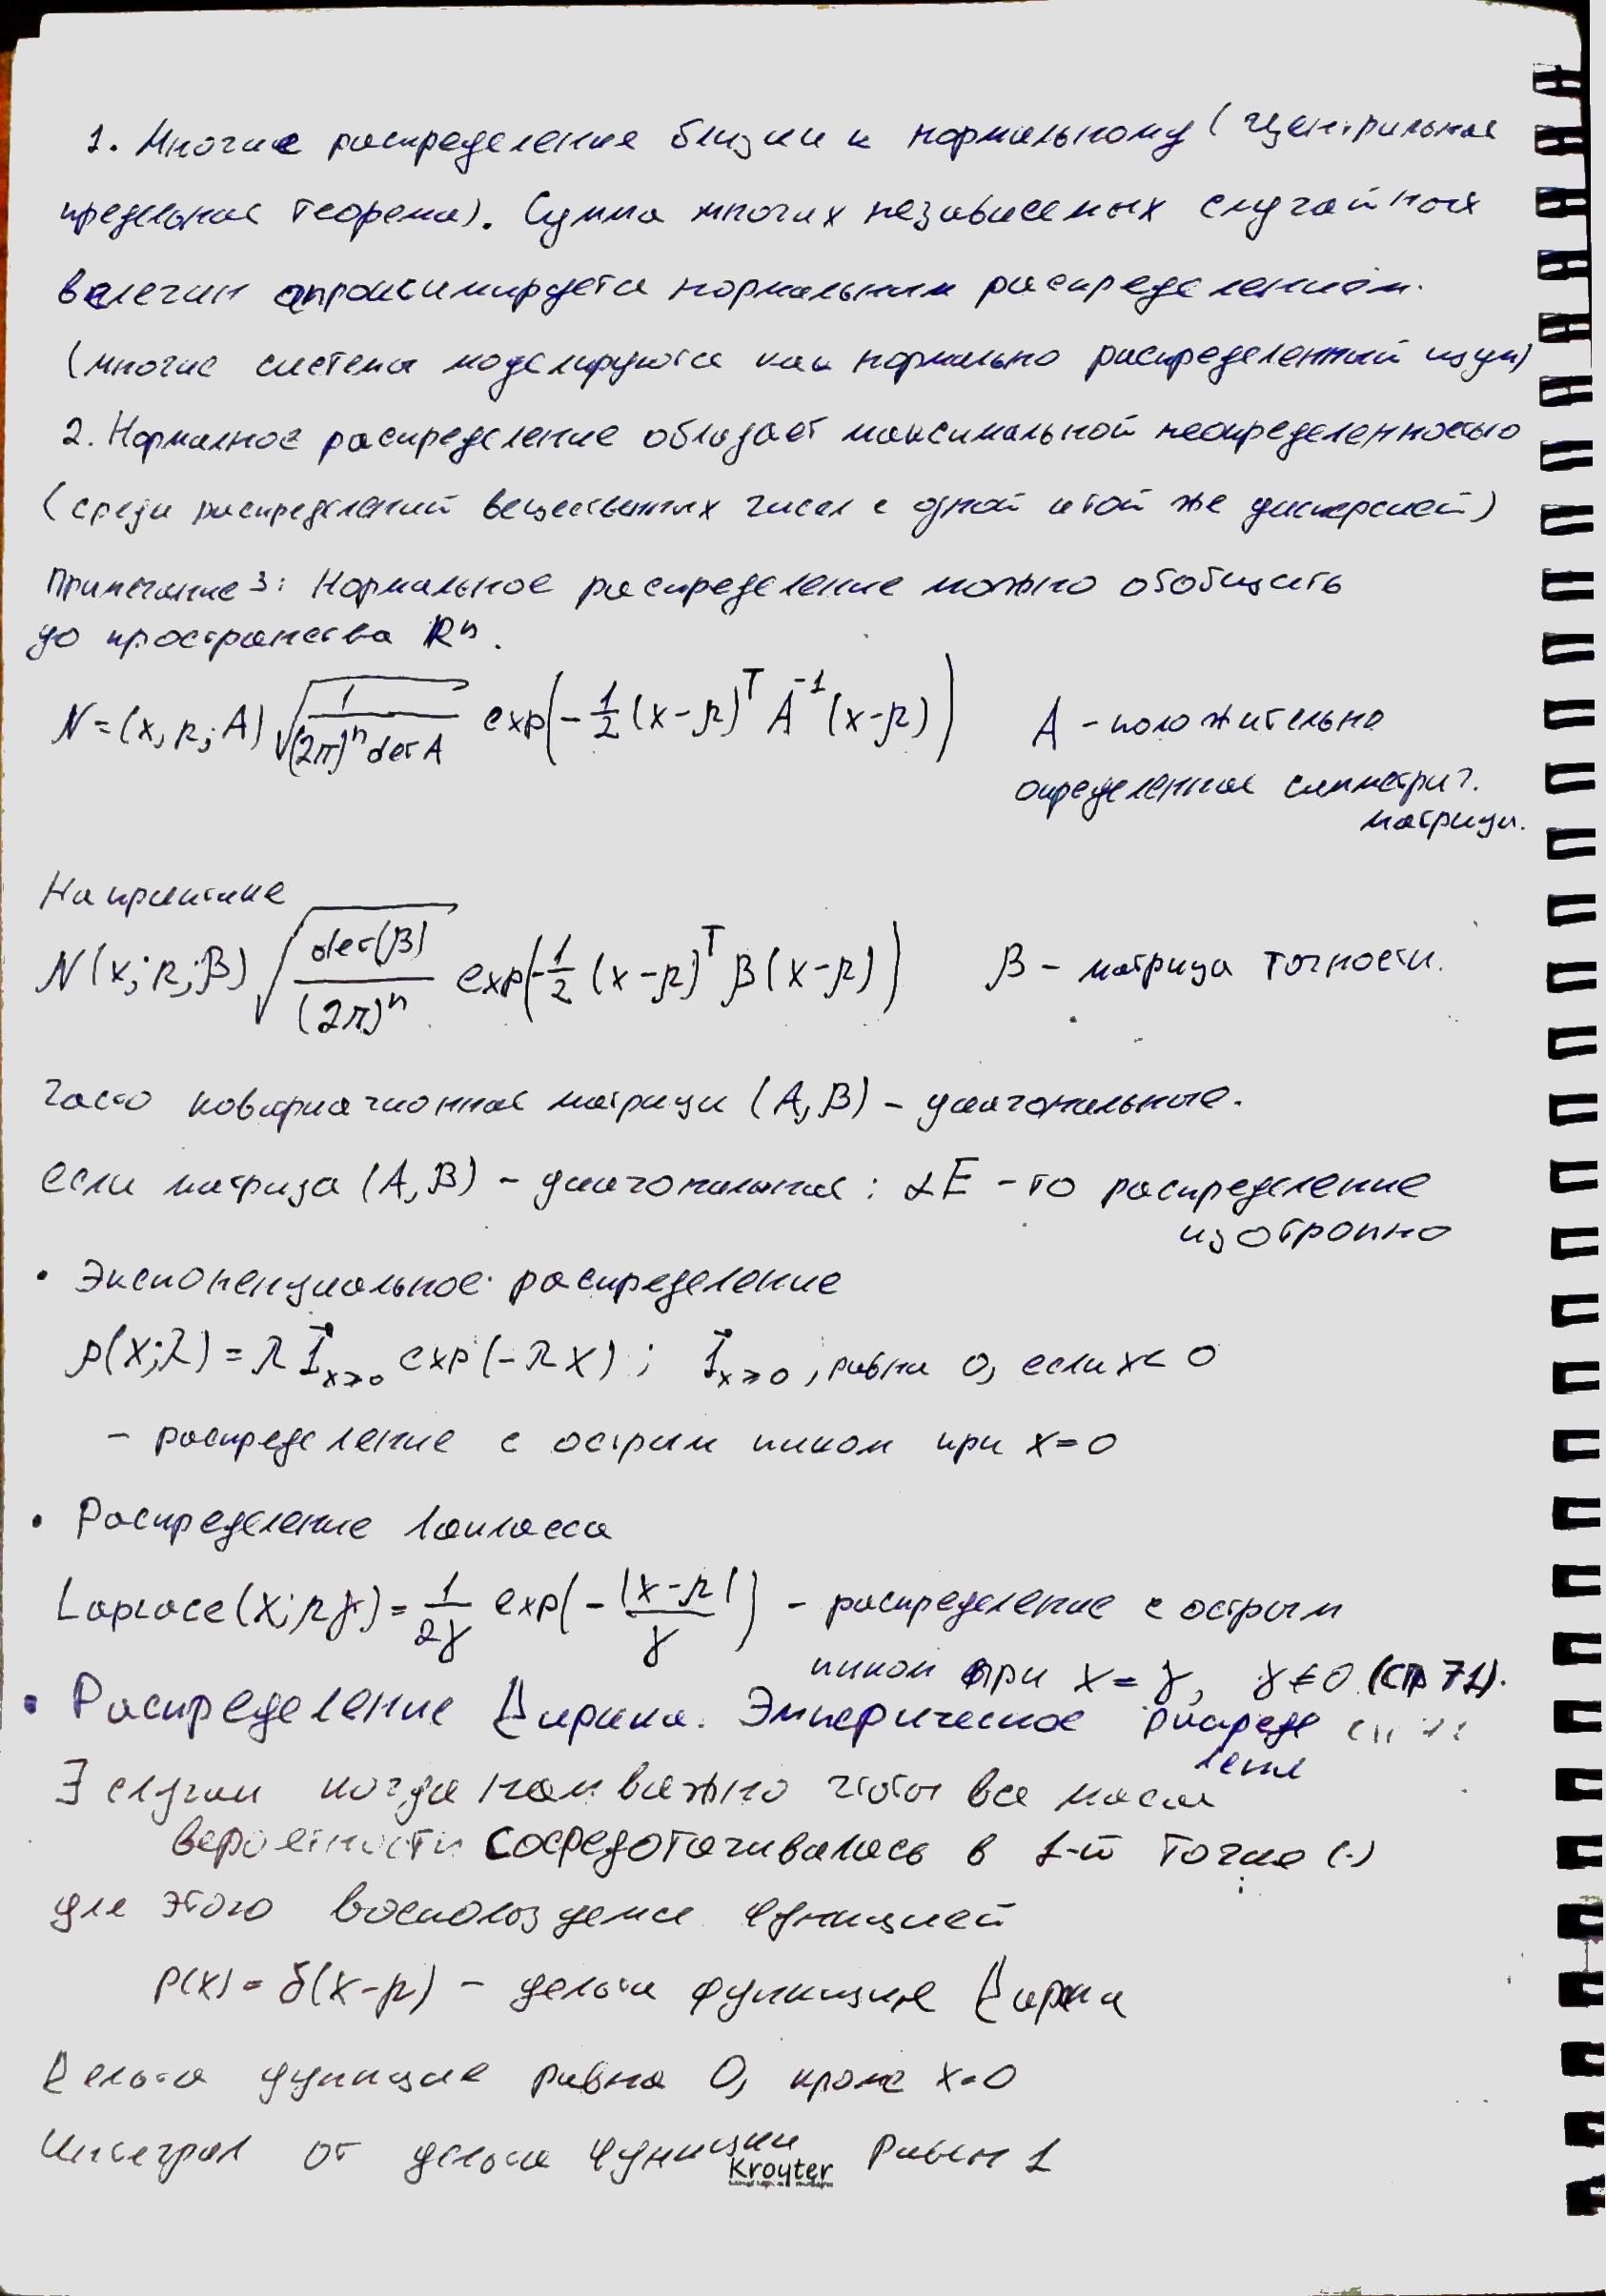 1. Многие распределения близки к нормальному (Центральная
предельная теорема). Сумма многих независемых случайных
велечин апроксимируется нормальным распределением.
(многие система моделируются как нормально распределенный шум)
2. Нормалное распределение обладает максимальной неопределенностью
(среди распределений вещественных чисел с одной и той же дисперсией)
Примечание 3: Нормальное распределение можно обобщить
до пространства ℝⁿ.
N = (x, μ; A) √(1/((2π)ⁿ det A)) exp(-1/2 (x-μ)ᵀ A⁻¹ (x-μ)) A - положительно
определенная симметрич.
матрица.
На практике
N(x; μ; β) √(det(β)/(2π)ⁿ) exp(-1/2 (x-μ)ᵀ β (x-μ)) β - матрица точности.
Часто ковариационная матрицы (A, β) - диагональные.
если матрица (A, β) - диагональная: αE - то распределение
изотропно
• Экспоненциальное распределение
p(x; λ) = λ 1ₓ≥₀ exp(-λx); 1ₓ≥₀, равна 0, если x < 0
- распределение с острым пиком при x=0
• Распределение Лапласса
Laplace(x; μ γ) = 1/2γ exp(-|x-μ|/γ) - распределение с острым
пиком при x = γ, γ≠0 (стр 71).
• Распределение Дирака. Эмперическое распреде
ление
∃ случаи когда нам важно чтобы вся масса
вероятности сосредотачивалась в 1-й точке (·)
для этого воспользуемся функцией
p(x) = δ(x-μ) - дельта функция Дирака
Дельта функция равна 0, кроме x=0
Интеграл от дельта функции равен 1
Kroyter